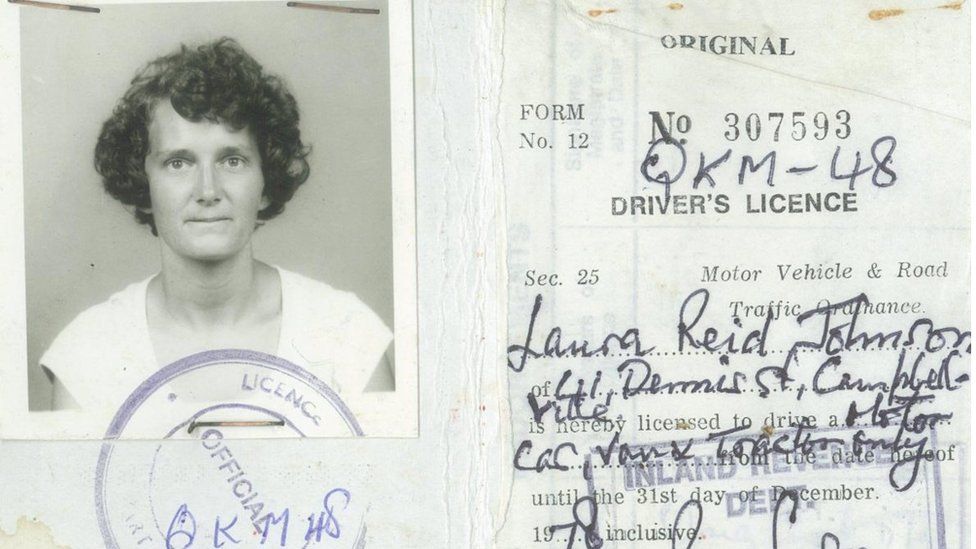 LICENCE
OFFICIAL
QKM48
ORIGINAL
FORM
No. 12
No 307593
QKM-48
DRIVER'S LICENCE
Sec. 25 Motor Vehicle & Road
Traffic Ordinance.
Laura Reid Johnson
of 41, Dennis St, Campbell-
ville
is hereby licensed to drive a Motor
car, van & Tractor only
from the date hereof
INLAND REVENUE
until the 31st day of December.
DEPT.
1978 inclusive.